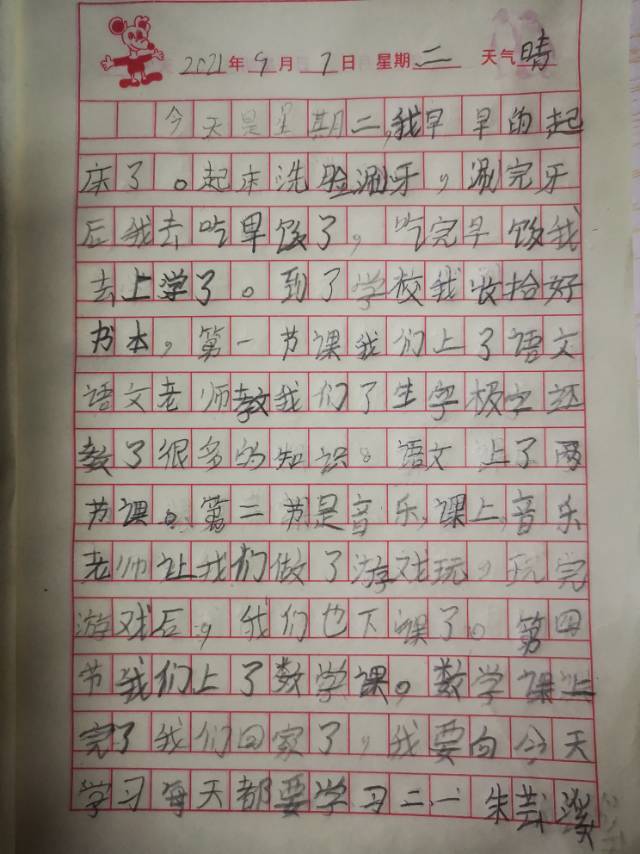 2021年9月7日 星期二 天气晴
今天是星期二,我早早的起
床了。起来洗脸涮牙,涮完牙
后我去吃早饭了,吃完早饭我
去上学了。到了学校我收拾好
书本,第一节课我们上了语文
语文老师教我们了生字极字还
教了很多的知识。语文上了两
节课。第二节是音乐,课上,音乐
老师让我们做了游戏玩,玩完
游戏后,我们也下课了。第四
节我们上了数学课。数学课上
完了我们回家了,我要向今天
学习每天都要学习二一朱芸溪